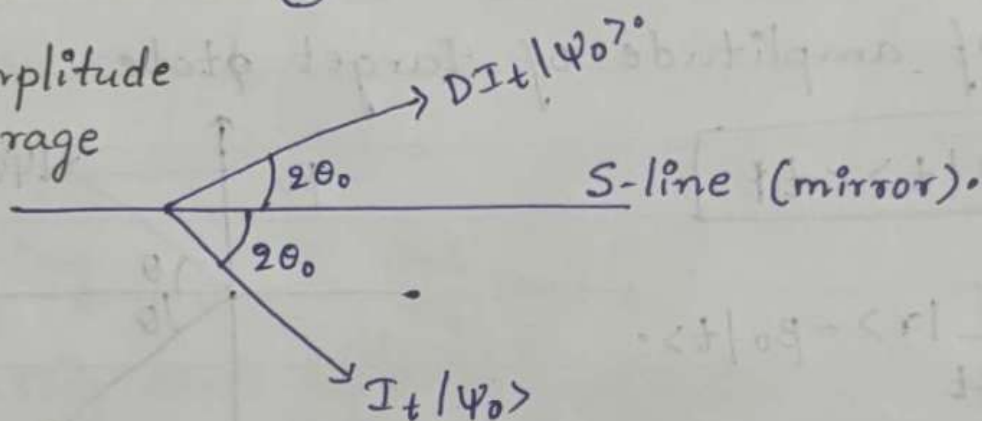 mplitude
rage
DI_t |ψ₀>
2θ₀
S-line (mirror).
2θ₀
I_t |ψ₀>